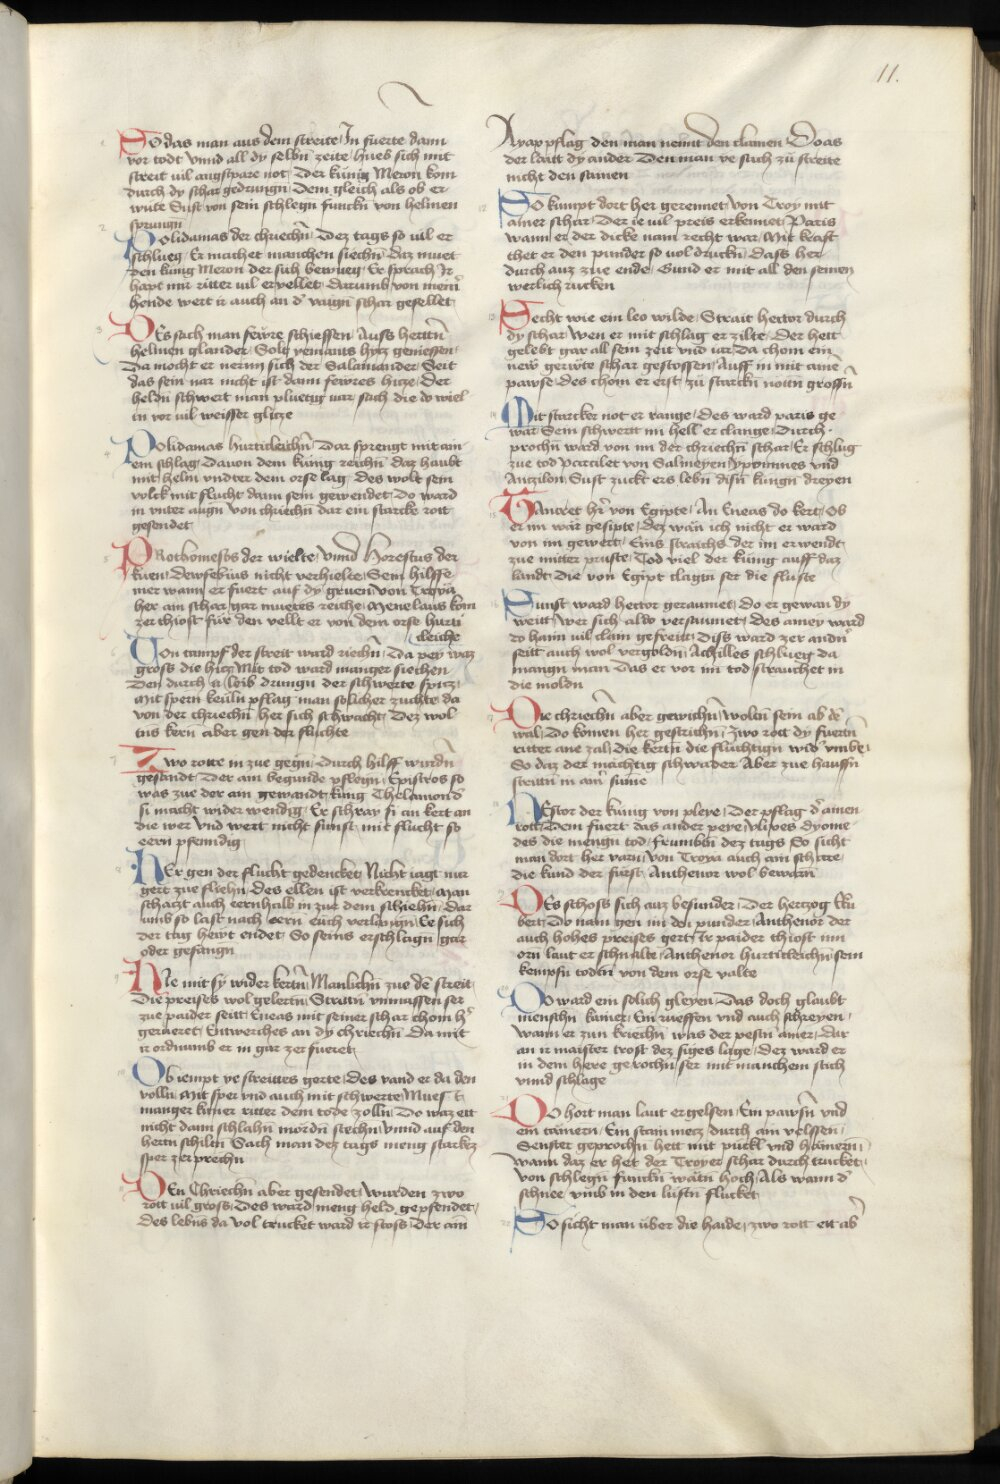 11.
So das man aus dem streite In fuerte dann
vor todt Vnnd all dy selbn zeite hueb sich mit
streit vil angstpare not Der kunig Meron kom
durch dy schar gedrungn Dem gleich als ob er
wute Sust von sein schlegn funckn von helmen
sprungn
Polidamas der chriechn Dez tags so vil er
schlueg Er machet manchen siechn daz muet
den kunig Meron der sich bewueg Er sprach Ir
habt mir ritter vil ervellet darumb von meiner
hende wert ir auch an d' vaign schar gesellet
Des sach man fewre schiessen Auss hertten
helmen glander Solt yemants hytz geniessen
Da mocht er nernn sich der Salamander Seit
das sein nar nicht ist dann fewres hitze Der
heldn schwert man pluetig var sach die do wiel
in vor vil weisser glitze
Polidamas hurtickleichn Dar sprengt mit am
em schlag Davon dem kunig reichn daz haubt
mit helm vndter dem orse lag Des wolt sein
volck mit flucht dann sein gewendet Do ward
in vnter augn von chriechn dar ein starcke rott
gesendet
Prothomesos der wielte Vnnd Horestus der
kuen Dewsebius nicht verhielte Sein hilffe
mer wann er fuert auf dy gruenn von Troya
her am schar gar muetes reiche Menelaus kom
zer thiost fur den vellt er von dem orse hurti
cleiche
Von tampf der streit ward riechn Da pey waz
gross die hitz Mit tod ward manger siechen
Den durch ir leib drungn der schwerte spitz
Mit spern keuln pflag man solicher zuchte da
von der chriechn her sich schwacht Dez wol
tns kern aber gen der fluchte
Zwo rotte in zue gegn durch hilff wurdn
gesandt Der ain begunde pflegn Epistros so
was zue der am gewandt kung Thelamon d'
si macht wider wendig Er schray si an kert an
die wer Vnd wert nicht sunst mit flucht so
eern pfenndig
Wer gen der flucht gedencket Nicht iagt nur
gert zue fliehn des ellen ist verkrencket Man
schatzt auch eernhalb in zue dem schiehn Dar
umb so last nach eern euch verlangn Ee sich
der tag hewt endet So seins erschlagn gar
oder gefangn
Ale mit sy wider kertn Manlichn zue dem streit
Die preises wol gelertn Strittn vnmassen ser
zue paider seitt Eneas mit seiner schar chom h'
geraeret Entwerches an dy chriechn Da mit
ir ordnumb er in gar zerfueret
Ob iempt ye streittes gerte des vand er da den
volln Mit sper vnd auch mit schwerte Mues t
manger kuner ritter dem tode zolln Do waz ett
nicht dann schlahn mordn stechn Vnnd auf den
hertn schiltn Sach man dez tags meng starckez
sper zerprechn
Den Chriechn aber gesendet Wurden zwo
rott vil gross Des ward meng held gepfendet
des lebns da vol trucket ward ir stoss Der ain
Ayax pflag den man nennt den clainen Doas
der laitt dy ander Den man ye sach zu streite
nicht den samen
So kumpt dort her gerennet Von Troy mit
ainer schar Der ie vil preis erkennet Paris
wann er der dicke nam recht war Mit krafft
thet er den punder so vol druckn dass her
durch auz zue ende Vnnd er mit all den seinen
werlich rucken
Secht wie ein leo wilde Strait hector durch
dy schar Wen er mit schlag erzilte Der hett
gelebt gar all sein zeit vnd iar Da chom ein
new gerwte schar gestossen Auff in mit aine
pawse des chom er erst zu starckn notn grossn
Mit starcker not er range Des ward paris ge
war Sein schwertt im hell erclange Durch
prochn ward von im der chriechn schar Er schlug
zue tod Percilet von Salmeyen ypominus vnd
Auzilon Sust zuckt ers lebn disn kungn dreyen
Tantret her von Egipte An Eneas do kert Ob
er im war gesipte Dez wan ich nicht er ward
von im gewert Eins straichs der im erwendt
zue mitter pruste Tod viel der kunig auff daz
landt die von Egipt clagtn ser die fluste
Sunst ward hector geraumet Do er gewan dy
weitt Wer sich aldo versaumet Des amey ward
do haim vil clain gefreitt Diss ward zer andn
seitt auch wol vergoldn Achilles schlueg da
mangn man Das er vor im tod strauchet in
die moldn
Die chriechn aber gewichn Woltn sein ab dem
wal Do komen her gestrichn Zwo rott dy fuertn
ritter ane zal Die kertn die fluchtign wid' vmbe
So daz der machtig schwader Aber zue hauffn
streittn in ainr sume
Nestor der kunig von pleye Der pflag d' ainen
rott Dem fuert das ander pere Vlixes dyome
des die mengn tod frumbtn dez tags So sicht
man dort her varn Von Troya auch ain scharre
die kund der furst Anthenor wol bewarn
Des schoss sich auz besunder Der hertzog Eu
bert Do nam gen im den punder Anthenor der
auch hohes preises gert Ir paider thiost mn
orn laut erschnalte Anthenor hurtickleichn sein
kempfn todtn von dem orse valte
Do ward ein solich gleyen Das doch glaubt
menschn kainer Ein rueffen vnd auch schreyen
Wann er zun kriechn was der pestn ainer Dar
an ir maister trost dez siges lage Dez ward er
in dem here gerochn ser mit manchem stich
vnnd schlage
Do hort man laut ergelsen Ein pawsn vnd
ein tamern Ein stainmetz durch ain velssen
Fenster geprochn hett mit puckl vnd hamern
Wann daz er het der Troyer schar durch trucket
Von schlegn funckn watn hoch Als wann d'
schnee vmb in den luftn flucket
So sicht man uber die haide zwo rott ett ab'